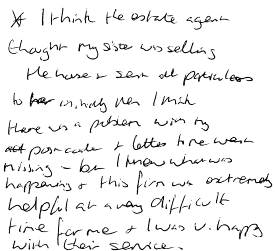 * I think the estate agent
thought my sister was selling
the house & sent all particulars
to her initially then I think
there was a problem with my
post code & letters to me were
missing - but I knew what was
happening & this firm was extremely
helpful at a very difficult
time for me & I was v. happy
with their service.